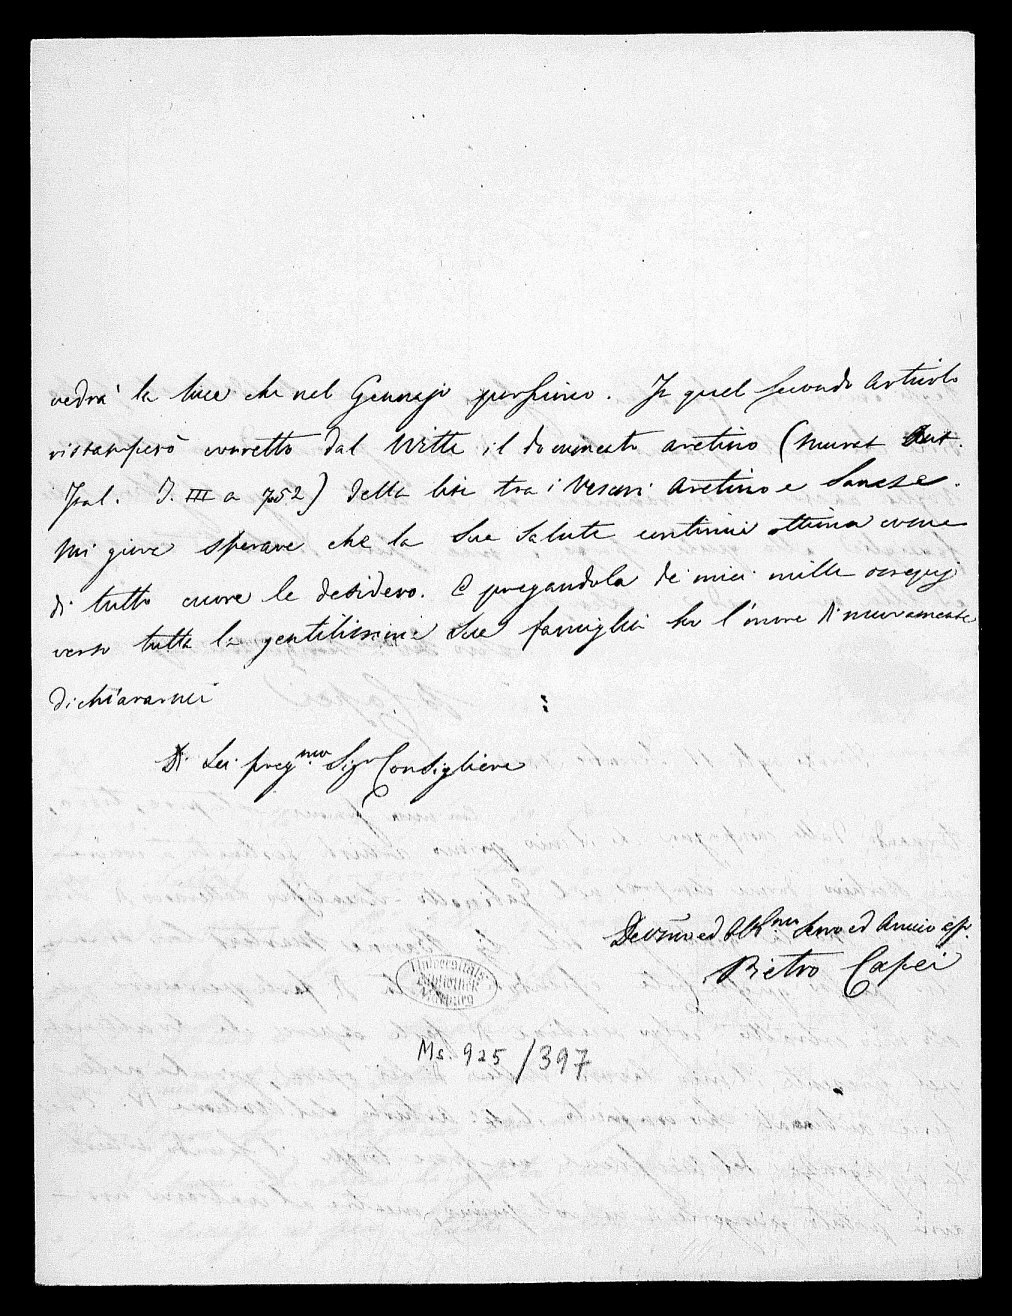 vedrà la luce che nel Gennajo prossimo. In quel secondo articolo
ristamperò corretto dal Witte il documento aretino (Murat Ant.
Ital. T. III a 752) della lite tra i Vescovi Aretino e Sanese.
Mi giova sperare che la Sua Salute continui ottima come
di tutto cuore le desidero. E pregandola de' miei mille ossequj
verso tutta la gentilissima Sua famiglia ho l'onore di nuovamente
dichiararmi
Di Lei pregmo Sigr Consigliere
Devmo ed Obbmo Servo ed Amico
Pietro Capei
Universitäts
Bibliothek
Marburg
Ms. 925/397